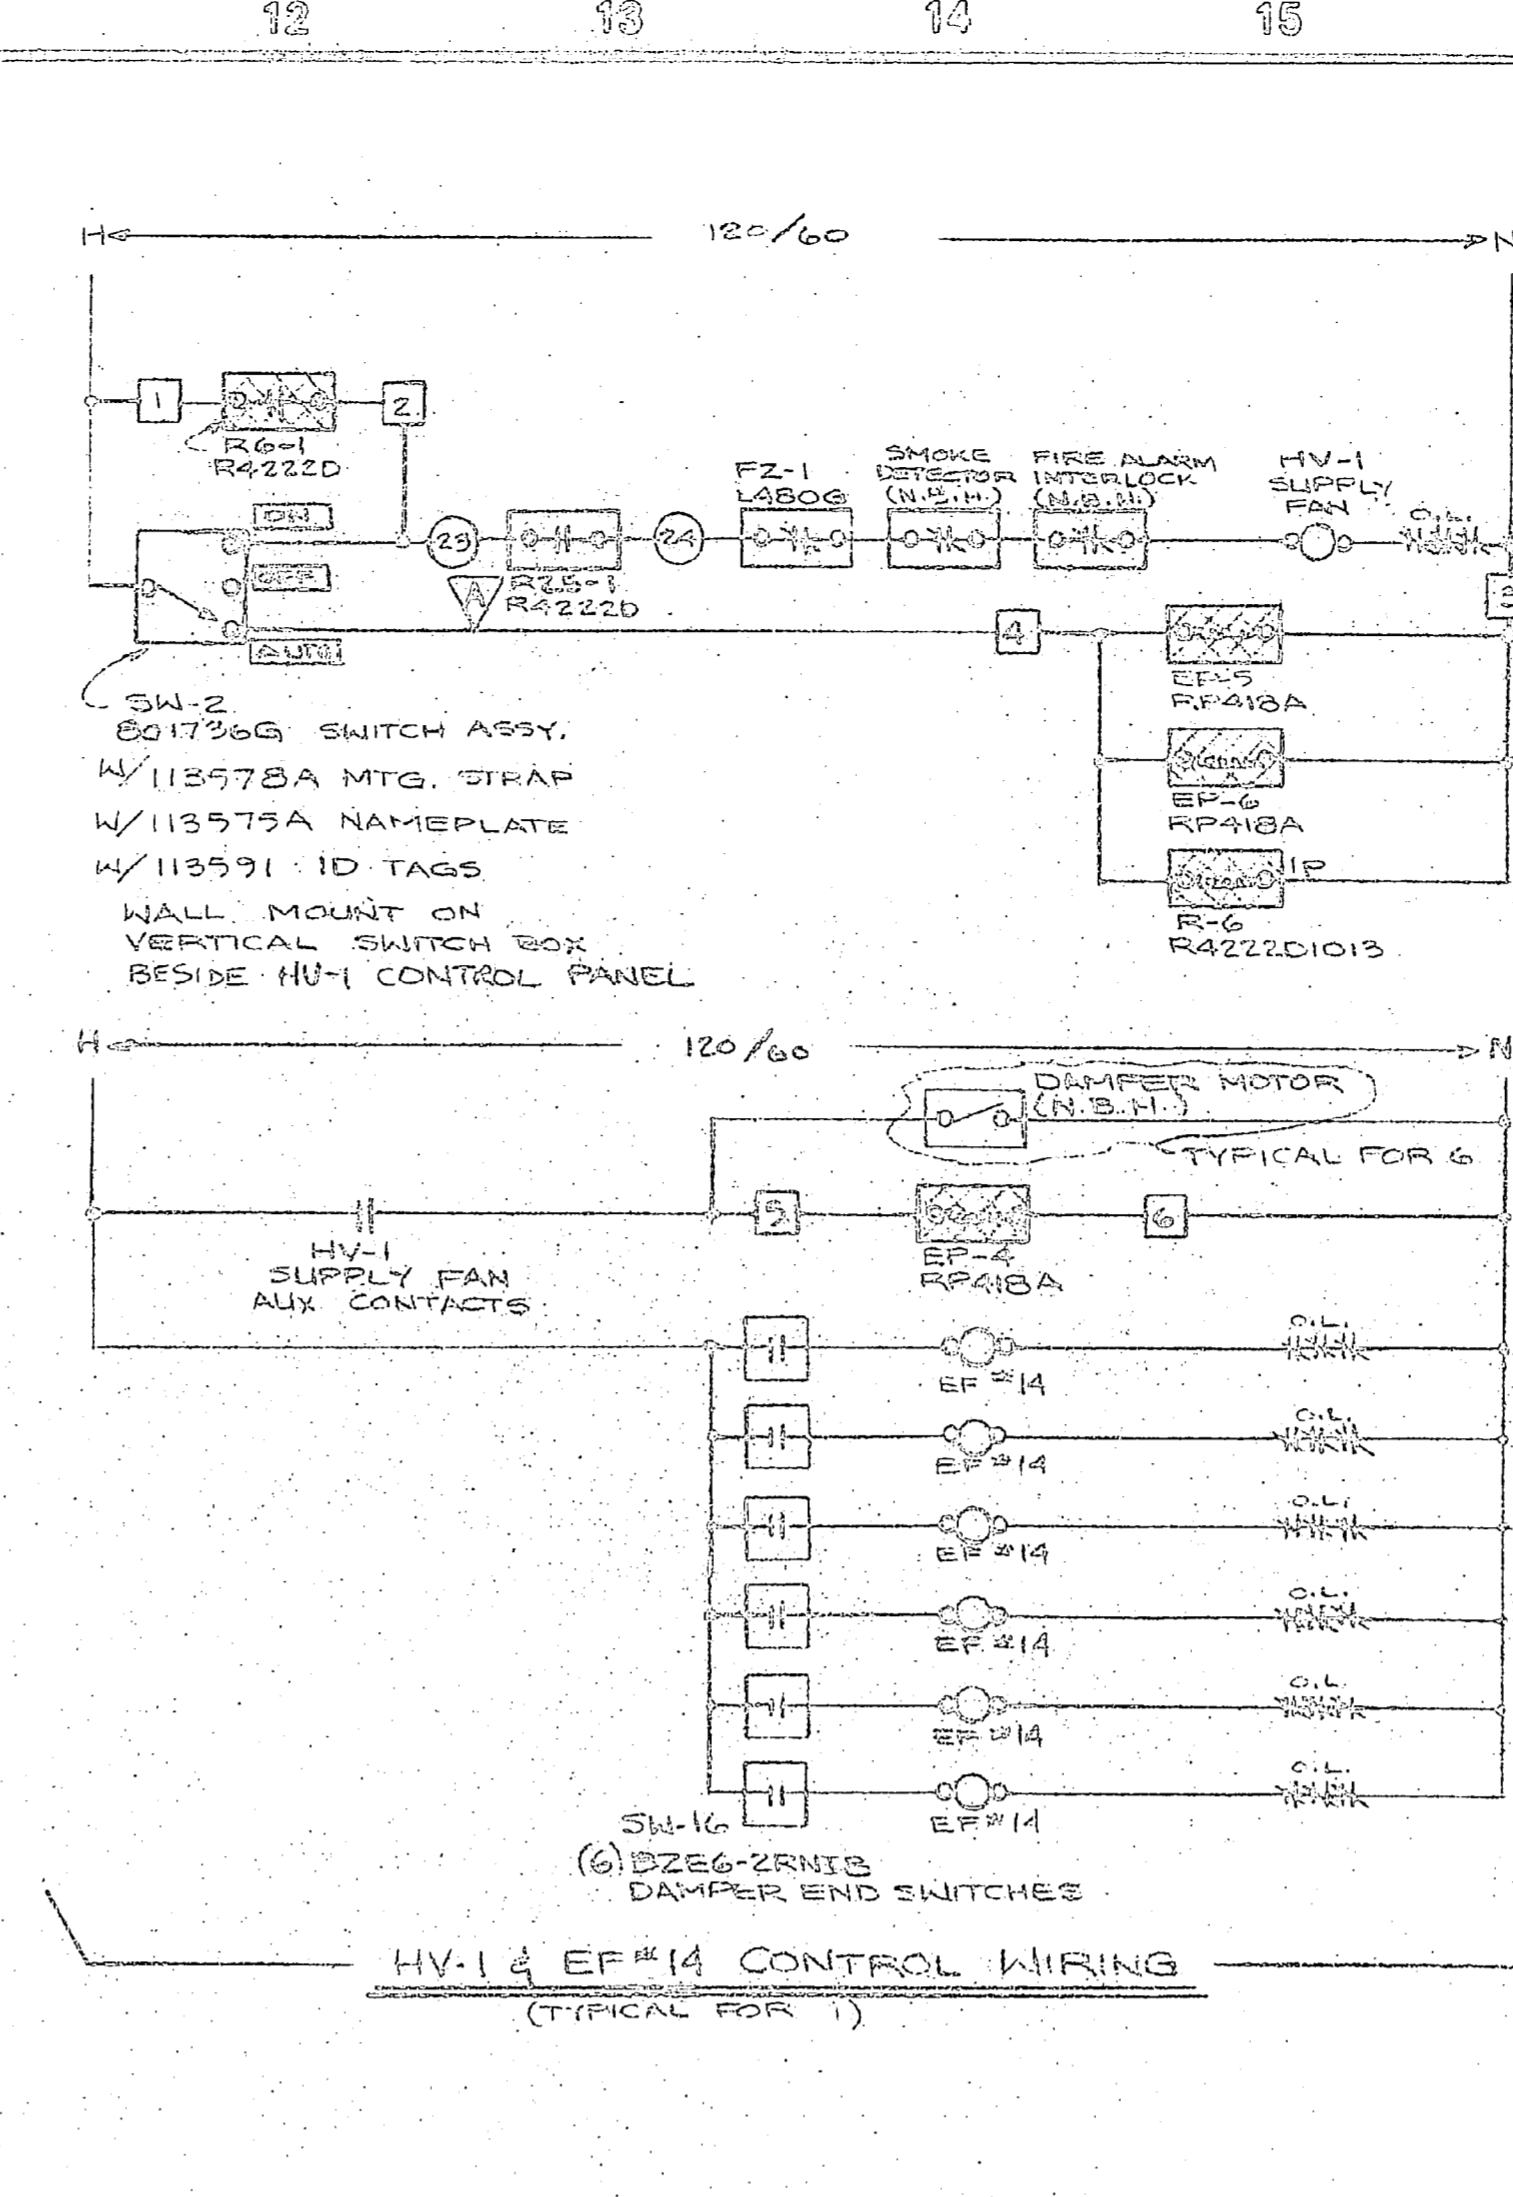 12 13 14 15
H 120/60 N
1 2
R6-1
R4222D
ON
OFF
AUTO
23 24
R25-1
R4222D
A
FZ-1
L480G
SMOKE
DETECTOR
(N.B.H.)
FIRE ALARM
INTERLOCK
(N.B.H.)
HV-1
SUPPLY
FAN
O.L.
3
4
EP-5
RP418A
EP-6
RP418A
1P
R-6
R4222D1013
SW-2
801736G SWITCH ASSY.
W/113578A MTG. STRAP
W/113575A NAMEPLATE
W/113591 ID TAGS
WALL MOUNT ON
VERTICAL SWITCH BOX
BESIDE HV-1 CONTROL PANEL
H 120/60 N
DAMPER MOTOR
(N.B.H.)
TYPICAL FOR 6
5 6
HV-1
SUPPLY FAN
AUX CONTACTS
EP-4
RP418A
O.L.
EF #14
O.L.
EF #14
O.L.
EF #14
O.L.
EF #14
O.L.
EF #14
O.L.
EF #14
SW-16
(6) DZE6-2RNIB
DAMPER END SWITCHES
HV-1 & EF #14 CONTROL WIRING
(TYPICAL FOR 1)